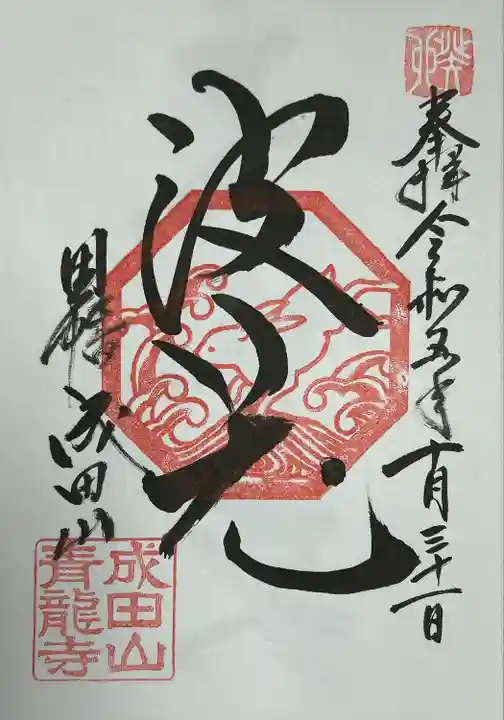 癸卯
奉拝 令和五年十月三十一日
波
成田山
成田山
青龍寺